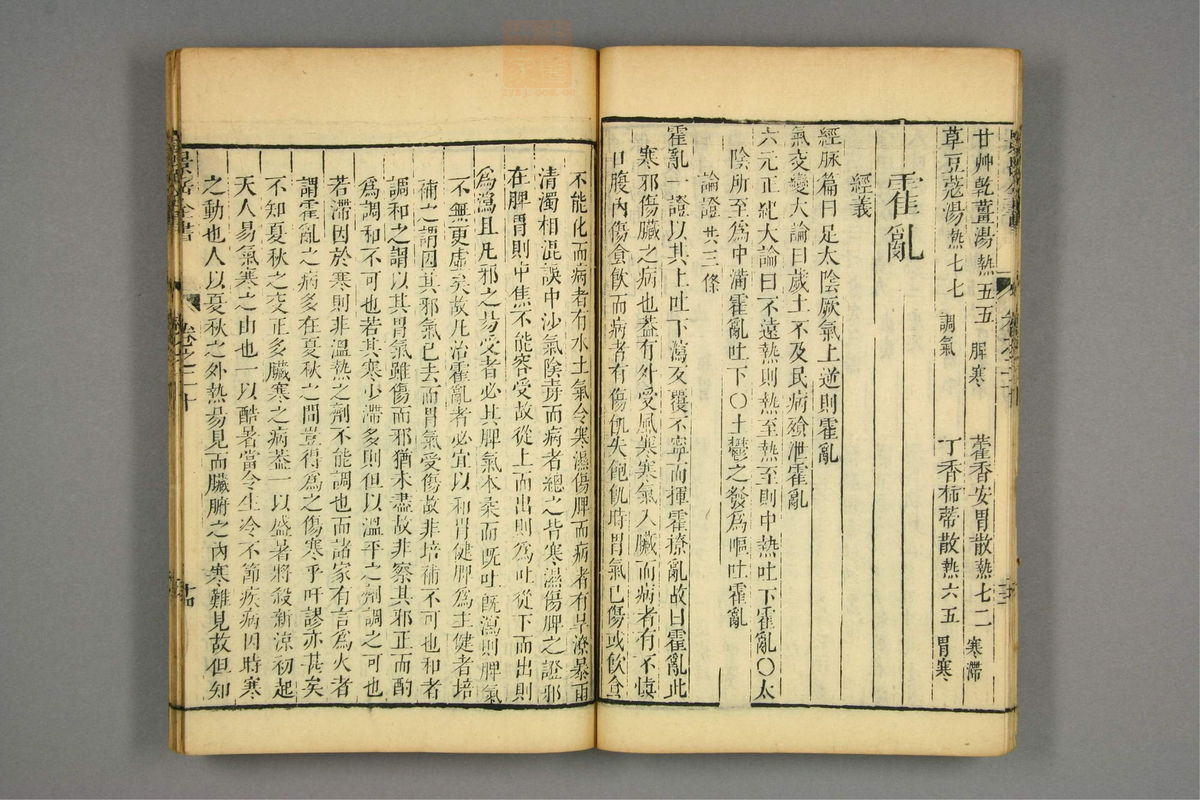 甘艸乾薑湯熱五五 脾寒 藿香安胃散熱七二 寒滯
草豆蔻湯熱七七 調氣 丁香柿蒂散熱六五 胃寒
霍亂
經義
經脉篇曰足太陰厥氣上逆則霍亂
氣交變大論曰歲土不及民病飱泄霍亂
六元正紀大論曰不遠熱則熱至熱至則中熱吐下霍亂〇太
陰所至爲中滿霍亂吐下〇土鬱之發爲嘔吐霍亂
論證 共三條
霍亂一證以其上吐下瀉反覆不寧而揮霍撩亂故曰霍亂此
寒邪傷臟之病也葢有外受風寒寒氣入臟而病者有不慎
口腹內傷食飲而病者有傷飢失飽飢時胃氣已傷或飲食
不能化而病者有水土氣令寒濕傷脾而病者有旱潦暴雨
清濁相混誤中沙氣陰毒而病者總之皆寒濕傷脾之證邪
在脾胃則中焦不能容受故從上而出則爲吐從下而出則
爲瀉且凡邪之易受者必其脾氣本柔而既吐既瀉則脾氣
不無更虛矣故凡治霍亂者必宜以和胃健脾爲主健者培
補之謂因其邪氣已去而胃氣受傷故非培補不可也和者
調和之謂以其胃氣雖傷而邪猶未盡故非察其邪正而酌
爲調和不可也若其寒少滯多則但以溫平之劑調之可也
若滯因於寒則非溫熱之劑不能調也而諸家有言爲火者
謂霍亂之病多在夏秋之間豈得爲之傷寒乎吁謬亦甚矣
不知夏秋之交正多臟寒之病葢一以盛暑將殺新涼初起
天人易氣寒之由也一以酷暑當令生冷不節疾病因時寒
之動也人以夏秋之外熱易見而臟腑之內寒難見故但知
景岳全書 卷之二十 廿四